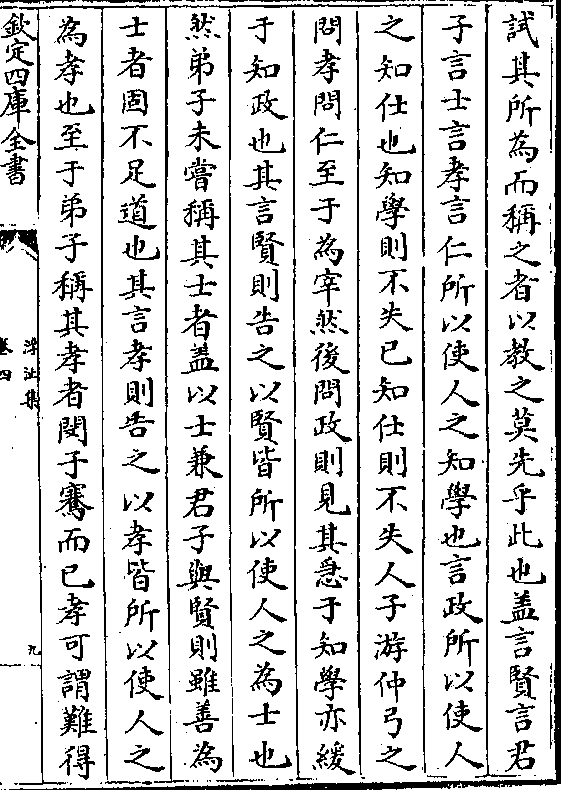 試其所為而稱之者以教之莫先乎此也盖言賢言君
子言士言孝言仁所以使人之知學也言政所以使人
之知仕也知學則不失已知仕則不失人子游仲弓之
問孝問仁至于為宰然後問政則見其急于知學亦緩
于知政也其言賢則告之以賢皆所以使人之為士也
然弟子未嘗稱其士者盖以士兼君子與賢則雖善為
士者固不足道也其言孝則告之以孝皆所以使人之
為孝也至于弟子稱其孝者閔子騫而已孝可謂難得
欽定四庫全書
浮沚集
卷四
九